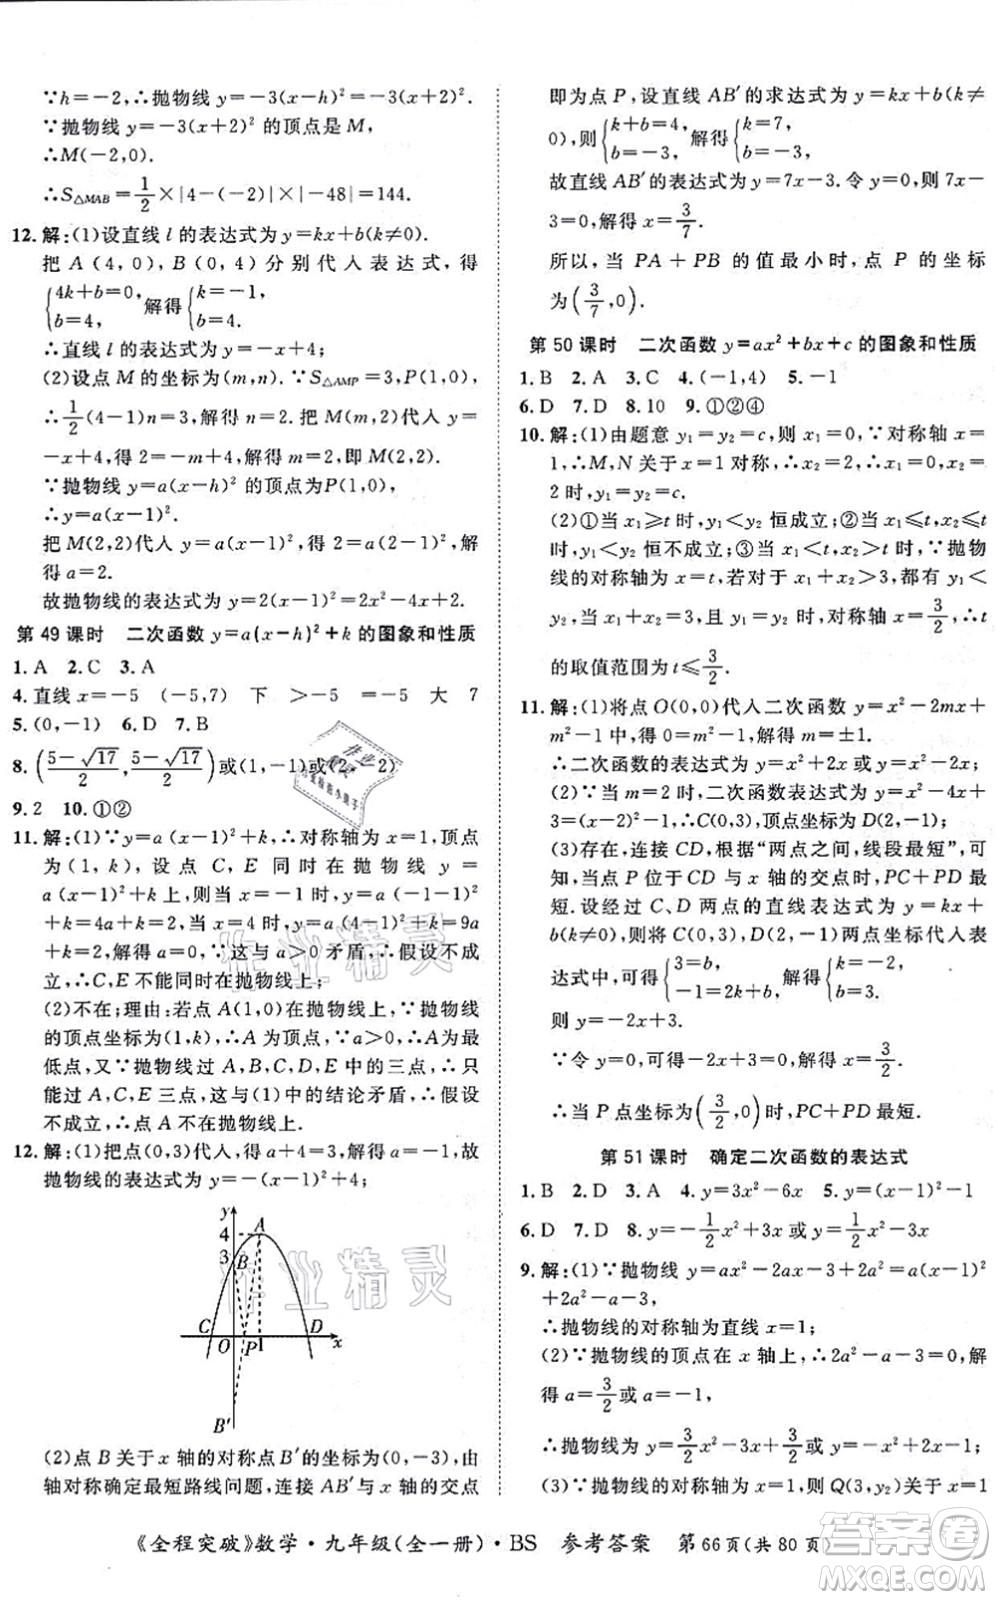 ∵h=-2,∴抛物线 y=-3(x-h)²=-3(x+2)².
∵抛物线 y=-3(x+2)²的顶点是 M,
∴M(-2,0).
∴S△MAB=1/2×|4-(-2)|×|-48|=144.
12.解:(1)设直线 l 的表达式为 y=kx+b(k≠0).
把 A(4,0),B(0,4)分别代入表达式,得
{4k+b=0, b=4, 解得{k=-1, b=4.
∴直线 l 的表达式为 y=-x+4;
(2)设点 M 的坐标为(m,n).∵S△AMP=3,P(1,0),
∴1/2(4-1)n=3,解得 n=2.把 M(m,2)代入 y=
-x+4,得 2=-m+4,解得 m=2,即 M(2,2).
∵抛物线 y=a(x-h)²的顶点为P(1,0),
∴y=a(x-1)².
把 M(2,2)代入 y=a(x-1)²,得 2=a(2-1)²,
解得 a=2.
故抛物线的表达式为 y=2(x-1)²=2x²-4x+2.
第 49 课时 二次函数 y=a(x-h)²+k 的图象和性质
1.A 2.C 3.A
4.直线 x=-5 (-5,7) 下 >-5 =-5 大 7
5.(0,-1) 6.D 7.B
8.((5-√17)/2,(5-√17)/2)或(1,-1)或(2,-2)
9.2 10.①②
11.解:(1)∵y=a(x-1)²+k,∴对称轴为 x=1,顶点
为(1,k),假设 C,E 同时在抛物线 y=
a(x-1)²+k上,则当x=-1 时,y=a(-1-1)²
+k=4a+k=2,当x=4时,y=a(4-1)²+k=9a
+k=2,解得 a=0,∵这与 a>0矛盾,∴假设不成
立,∴C,E 不能同时在抛物线上;
(2)不在;理由:若点 A(1,0)在抛物线上,∵抛物线
的顶点坐标为(1,k),∴A 为顶点,∵a>0,∴A 为最
低点,又∵抛物线过 A,C,D,E 中的三个点,∴只
能过 A,C,E 三点,这与(1)中的结论矛盾,∴假设
不成立,∴点A 不在抛物线上.
12.解:(1)把点(0,3)代入,得 a+4=3,∴a=-1,故
抛物线的表达式为 y=-(x-1)²+4;
y
4 A
3 B
C O P 1 D x
B′
(2)点 B 关于 x 轴的对称点 B′的坐标为(0,-3),由
轴对称确定最短路线问题,连接 AB′与 x 轴的交点
即为点 P,设直线 AB′的求达式为 y=kx+b(k≠
0),则{k+b=4, b=-3, 解得{k=7, b=-3,
故直线 AB′的表达式为 y=7x-3.令 y=0,则 7x-
3=0,解得 x=3/7.
所以,当 PA+PB 的值最小时,点 P 的坐标
为(3/7,0).
第 50 课时 二次函数 y=ax²+bx+c 的图象和性质
1.B 2.A 3.C 4.(-1,4) 5.-1
6.D 7.D 8.10 9.①②④
10.解:(1)由题意 y₁=y₂=c,则 x₁=0,∵对称轴 x=
1,∴M,N 关于 x=1 对称,∴x₂=2,∴x₁=0,x₂=
2 时,y₁=y₂=c.
(2)①当 x₁≥t 时,y₁<y₂ 恒成立;②当 x₁≤t,x₂≤t
时,y₁<y₂ 恒不成立;③当 x₁≤t,x₂≥t 时,∵抛物
线的对称轴为 x=t,若对于 x₁+x₂>3,都有 y₁<
y₂,∵当 x₁+x₂=3,且 y₁=y₂ 时,对称轴 x=3/2,∴t
的取值范围为 t≤3/2.
11.解:(1)将点 O(0,0)代入二次函数 y=x²-2mx+
m²-1,得 0=m²-1.解得 m=±1.
∴二次函数的表达式为 y=x²+2x 或 y=x²-2x;
(2)当 m=2 时,二次函数为 y=x²-4x+3=(x-
2)²-1,∴C(0,3),顶点坐标为 D(2,-1);
(3)存在,连接 CD,根据“两点之间,线段最短”,可
知,当点 P 位于 CD 与 x 轴的交点时,PC+PD 最
短.设经过 C、D 两点的直线表达式为 y=kx+
b(k≠0),则将 C(0,3),D(2,-1)两点坐标代入表
达式中,可得{3=b, -1=2k+b, 解得{k=-2, b=3.
则 y=-2x+3.
∵令 y=0,可得-2x+3=0,解得 x=3/2.
∴当 P 点坐标为(3/2,0)时,PC+PD 最短.
第 51 课时 确定二次函数的表达式
1.B 2.D 3.A 4.y=3x²-6x 5.y=(x-1)²-1
6.D 7.D 8.y=-1/2x²+3x 或 y=1/2x²+x
9.解:(1)∵抛物线 y=ax²-2ax+2a²=a(x-1)²
+2a²-a,
∴抛物线的对称轴为直线 x=1;
(2)∵抛物线的顶点在 x 轴上,∴2a²-a-3=0,解
得 a=3/2或 a=-1,
∴抛物线为 y=3/2x²-3x+3/2或 y=-x²+2x-1;
(3)∵抛物线的对称轴为 x=1,则 Q(3,y₂)关于 x=1
《全程突破》数学·九年级(全一册)·BS 参考答案 第 66 页(共 80 页)
作业精灵
作业精灵
MXQE.COM